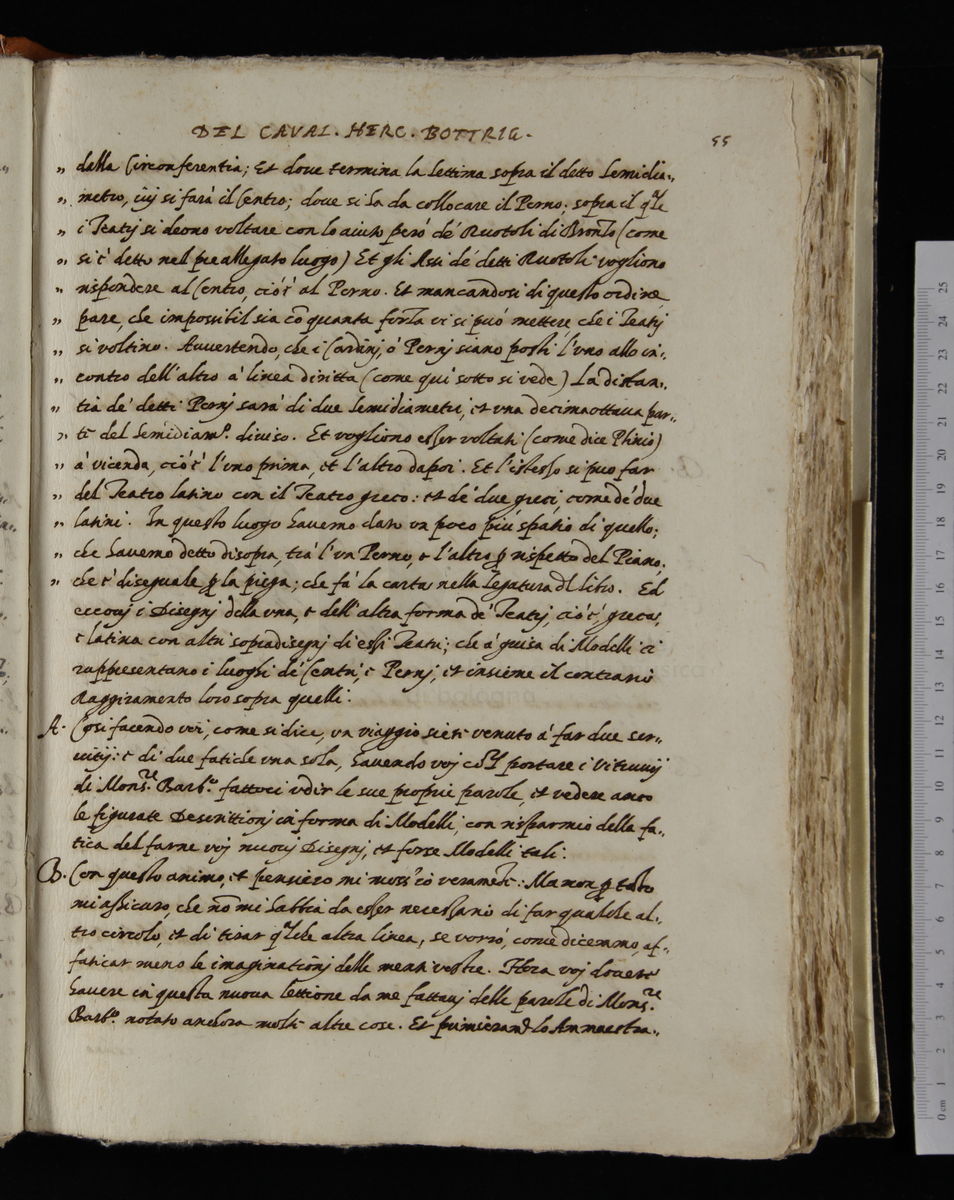 DEL CAVAL. HERC. BOTTRIG. 55
„ dalla Circonferentia; Et doue termina la settima sopra il detto Semidia-,
„ metro, iuj si farà il Centro; doue si ha da collocare il Perno; sopra il qle
„ i Teatrj si deono voltare con lo aiuto però de' Ruotoli di Bronzo (come
„ si è detto nel preallegato luogo) Et gli Assi de' detti Ruotoli vogliono
„ rispondere al Centro, cio è al Perno. Et mancandosi di questo ordine
„ pare, che impossibil sia cō quanta forza vi si può mettere, che i Teatrj
„ si voltino. Auuertendo, che i Cardinj, ò Pernj siano posti l'vno allo in-,
„ contro dell'altro à linea diritta (come quì sotto si vede) La distan-,
„ tia de' detti Pernj sarà di due Semidiametri, et vna decimaottaua par-,
„ te del Semidiamo. diuiso. Et vogliono esser voltati (come dice Plinio)
„ à vicenda, cio è l'vno prima, et l'altro dapoi. Et l'istesso si può far
„ del Teatro latino con il Teatro greco: et de' due greci, come de' due
„ latini. In questo luogo hauemo dato vn poco più spatio di quello;
„ che hauemo detto disopra, trà l'vn Perno, e l'altro ꝑ rispetto del Piano.
„ che è diseguale ꝑ la piega; che fà la carta nella legatura dl libro. Ed
eccouj i Disegnj della vna, e dell'altra forma de' Teatrj, cio è, greca,
e latina con altri sopradisegnj di essi Teatri; che à guisa di Modelli ci
rappresentano i luoghi de' Centri, e Pernj, et insieme il contrario
Raggiramento loro sopra quelli.
A. Cosi facendo voi, come si dice, vn viaggio siete venuto à far due ser-,
uitij: e di due fatiche vna sola, hauendo voj portare i Vitruuij
di Monsre. Barbo. fattoci vdir le sue proprie parole, et vedere anco
le figurate Descrittionj in forma di Modelli, con risparmio della fa-,
tica del farne voj nuouj Disegnj, et forse Modelli tali.
B. Con questo animo, et pensiero mi mossi io veramēte: Ma non ꝑ tāto
mi assicuro, che nō mi habbia da esser necessario di far qualche al-,
tro circolo, et di tirar qlche altra linea, se vorrò, come dicemmo, af-,
faticar meno le imaginationj delle menti vostre. Hora voj douete
hauere in questa nuoua lettione da me fattauj delle parole di Monsre.
Barbo. notato anchora molte altre cose. Et primieramte lo Ammaestra-,